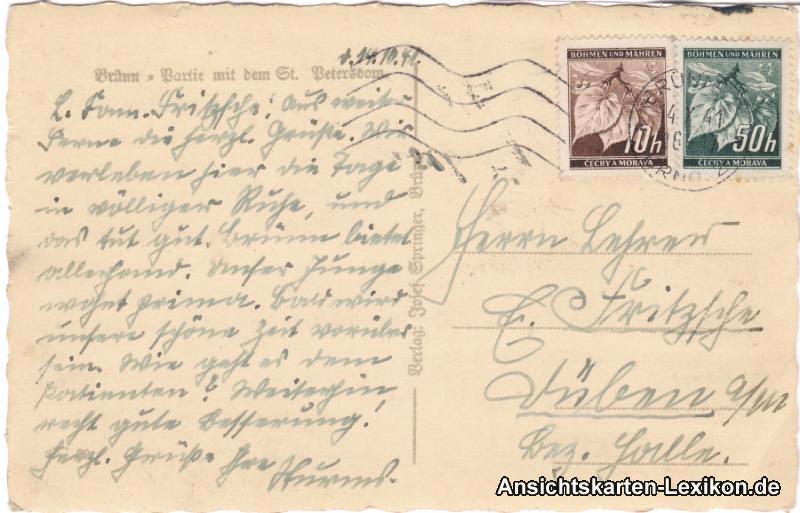 d. 14.10.41.
Brünn - Partie mit dem St. Petersdom
L. Fam. Fritzsche! Aus weiter
Ferne die herzl. Grüße. Wir
verleben hier die Tage
in völliger Ruhe, und
das tut gut. Brünn bietet
allerhand. Unser Junge
wohnt prima. Bald wird
unsere schöne Zeit vorüber
sein. Wie geht es dem
Patienten? Weiterhin
recht gute Besserung!
Herzl. Grüße Ihre
Sturms.
Verlag: Josef Springer, Brünn
BÖHMEN UND MÄHREN
10h
ČECHY A MORAVA
BÖHMEN UND MÄHREN
50h
ČECHY A MORAVA
BRÜNN
41
BRNO 2
Herrn Lehrer
E. Fritzsche
Düben a/M
Bez. Halle.
Ansichtskarten-Lexikon.de